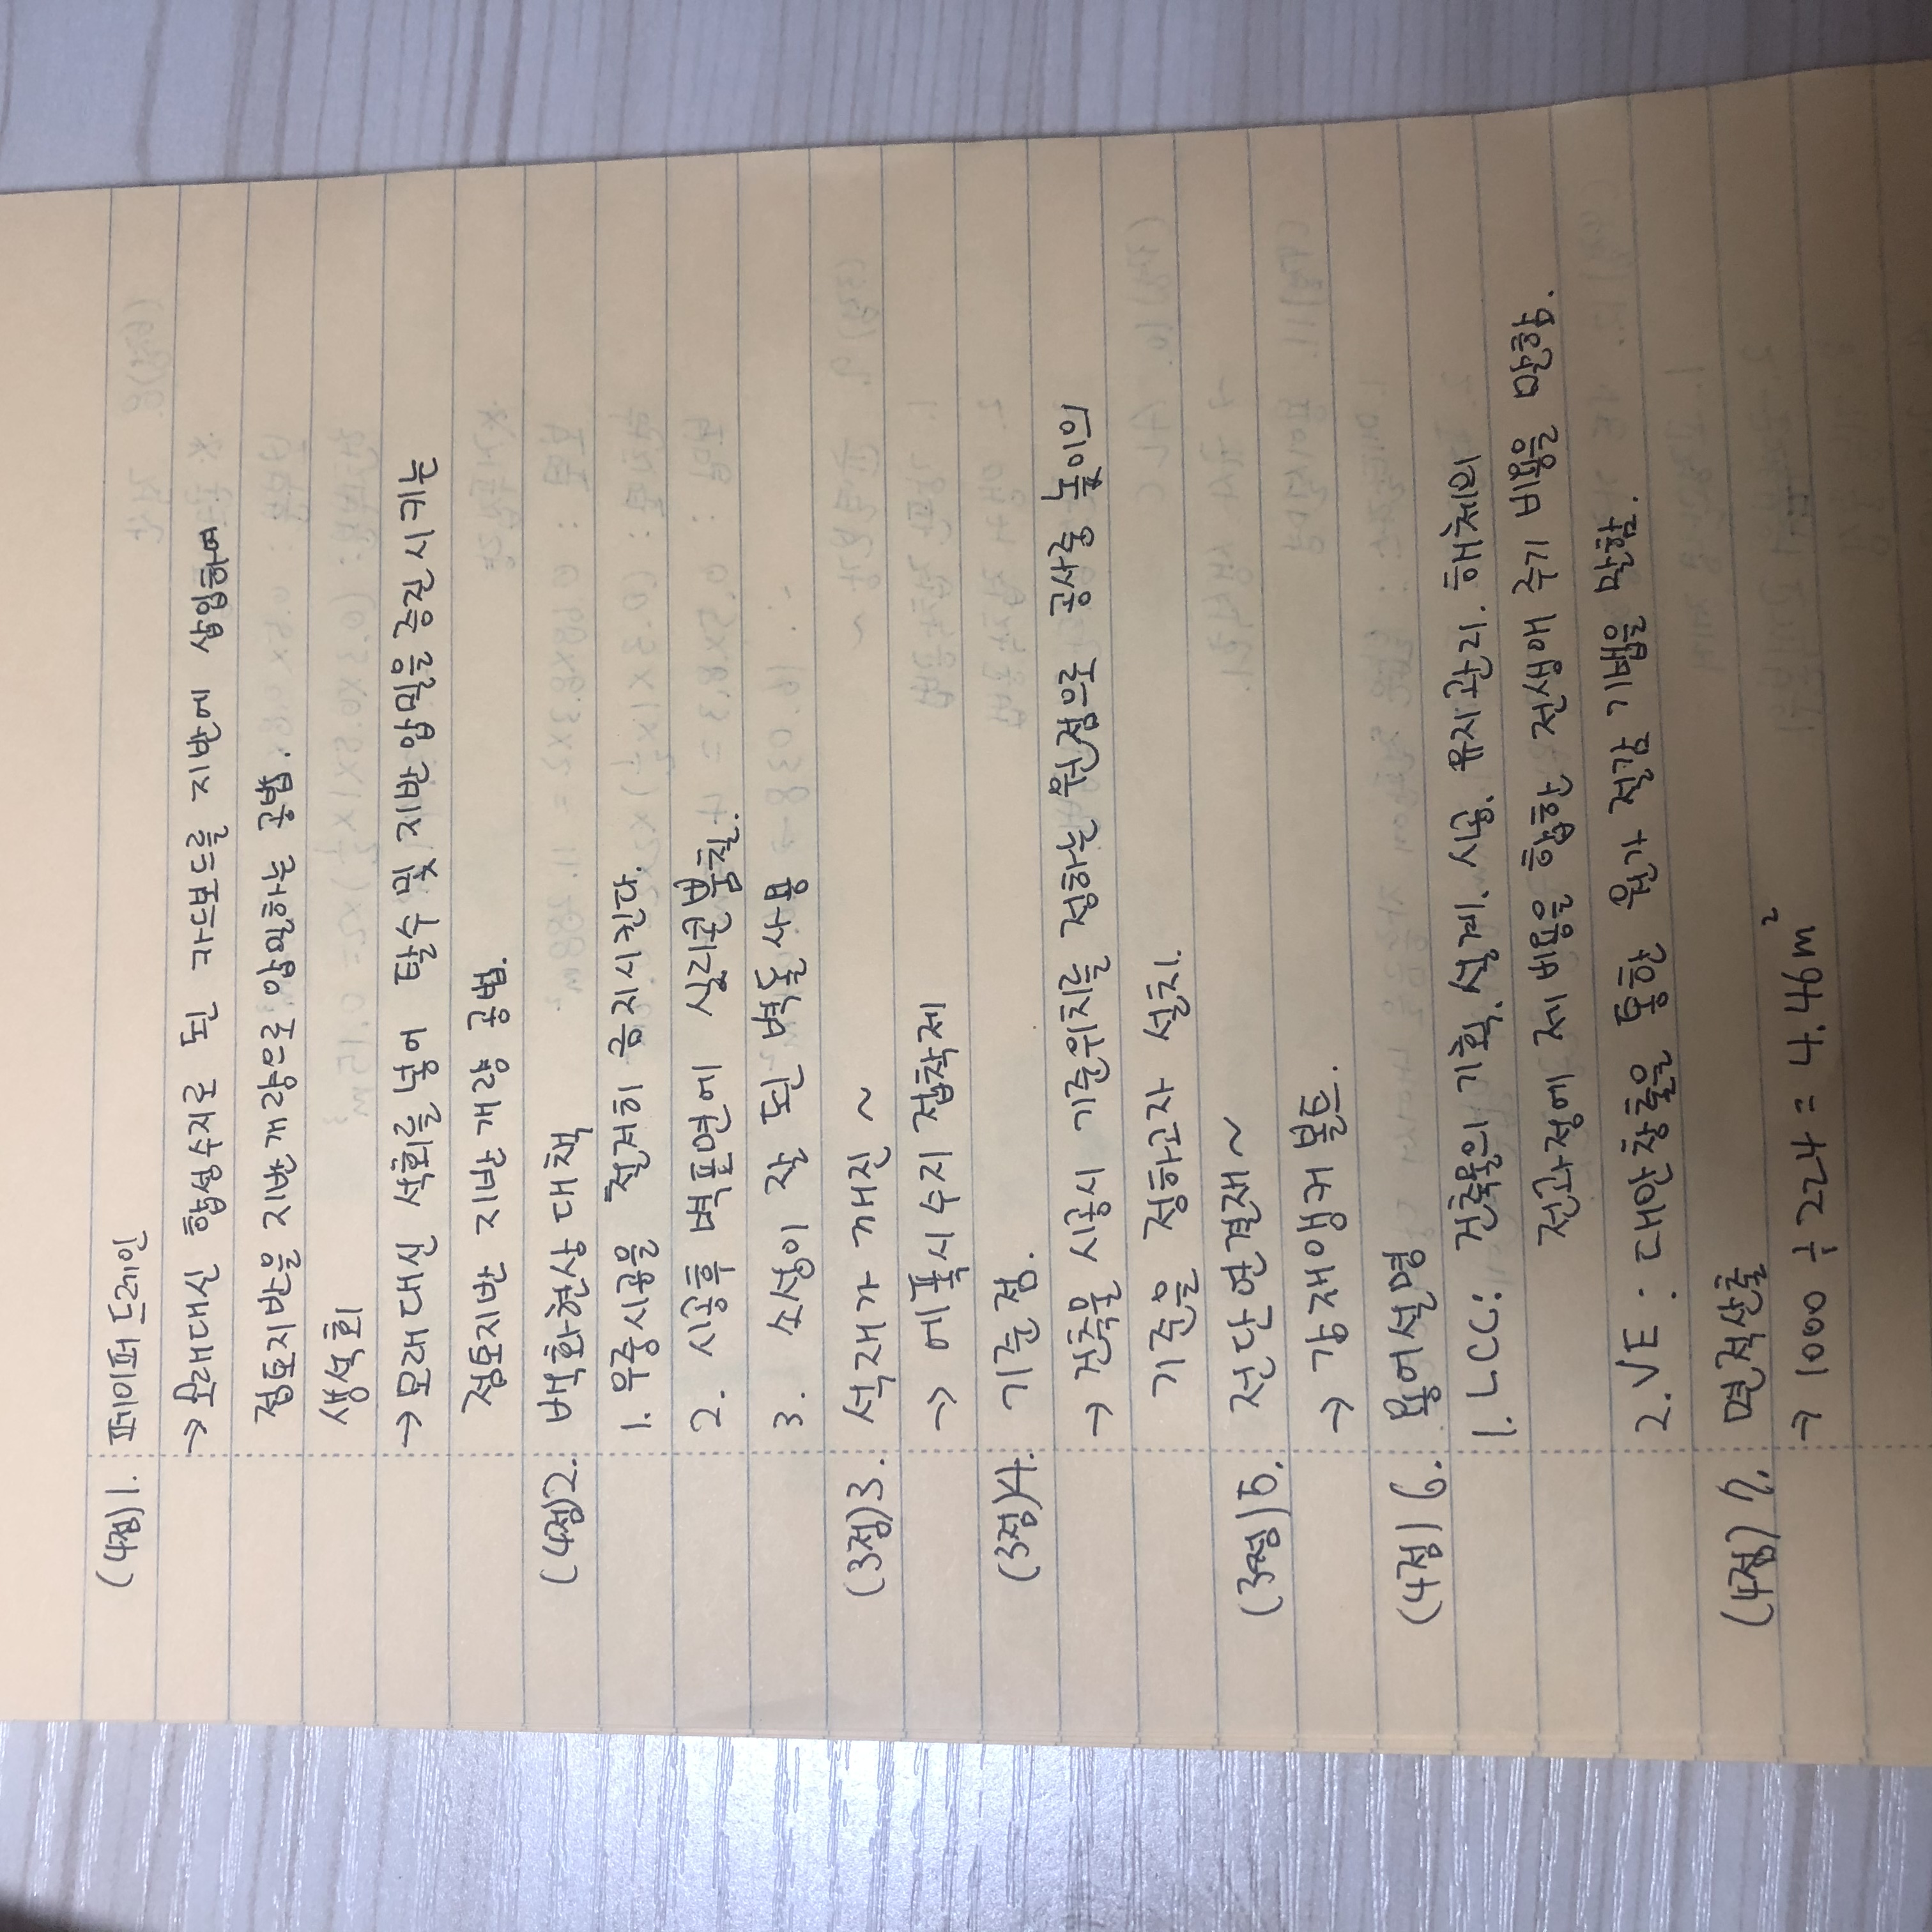 (4점) 1. 페이퍼 드레인
→ 모래대신 합성수지로 된 카드보드를 지반에 삽입하여
점토지반을 지반개량으로 압밀하는 공법.
생석회
→ 모래대신 석회를 넣어 탈수 및 지반압밀을 증진시키는
점토지반 지반개량 공법.
(4점) 2. 백화현상 대책
1. 우중시공을 철저히 금지시킨다.
2. 시공후 벽표면에 실리콘뿜칠.
3. 소성이 잘 된 벽돌사용
(3점) 3. 석재가 깨진 ~
→ 에폭시수지 접착제
(3점) 4. 기준점.
→ 건축물 시공시 기준위치를 정하는 원점으로 공사중 높이의
기준을 정하고자 설치.
(3점) 5. 전단연결재 ~
→ 강재앵커 볼트.
(4점) 6. 용어설명
1. LCC: 건축물의 기획. 설계. 시공. 유지관리. 해체의
전과정에 제비용을 합한 전생애 주기 비용을 말함.
2. VE : 대안창출을 통한 원가 절감 기법을 말함.
(4점) 7. 면적산출
→ 1000 ÷ 224 = 4.46m²